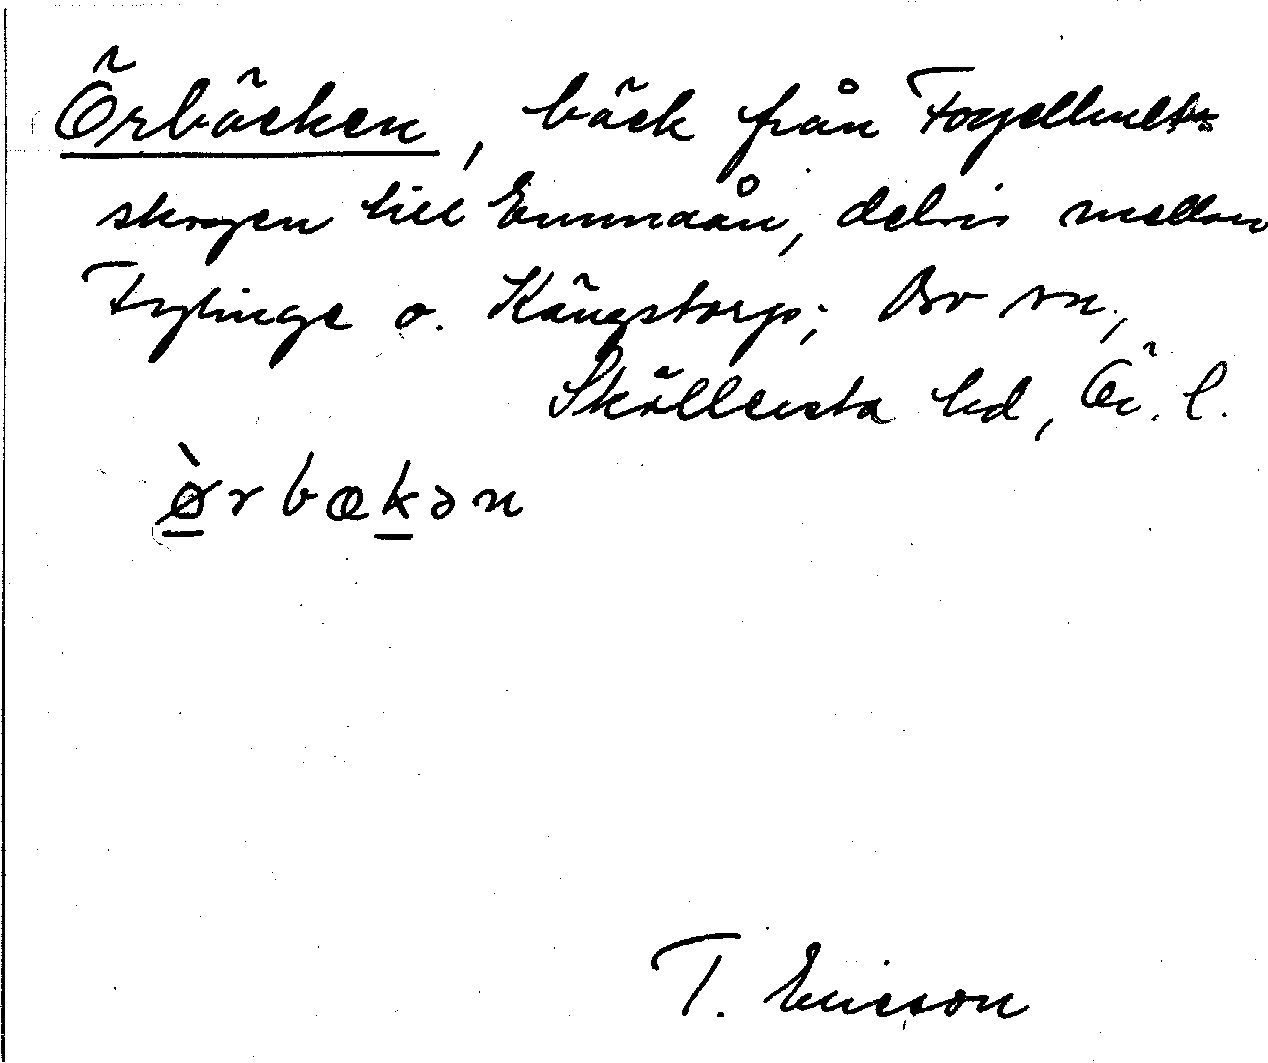 Örbäcken, bäck från Fogelhults-
skogen till Emmaån, delvis mellan
Frylinge o. Kängstorp; Bo sn,
Sköllersta hd, Ör. l.
ø̀rbækən
T. Ericson